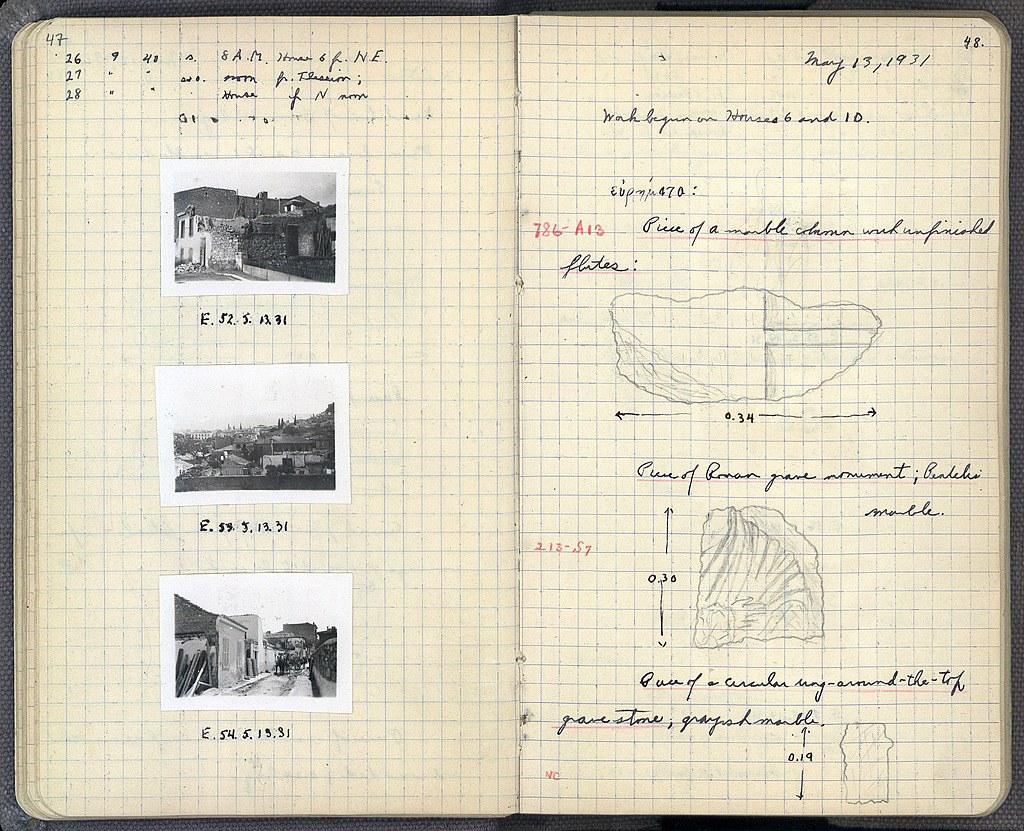 47
26 9 40 s. 8 A.M. House 6 f. N.E.
27 " " noon f.
28 " " House f N noon
E. 52. 5. 13.31
E. 53. 5. 13.31
E. 54. 5. 13.31
48.
May 13, 1931
Work begun on Houses 6 and 10.
εὑρήματα:
786-A13 Piece of a marble column with unfinished
flutes:
0.34
Piece of Roman grave monument; Pentelic
marble.
213-S7
0.30
Piece of a circular ring-around-the-top
grave stone; grayish marble.
0.19
NC